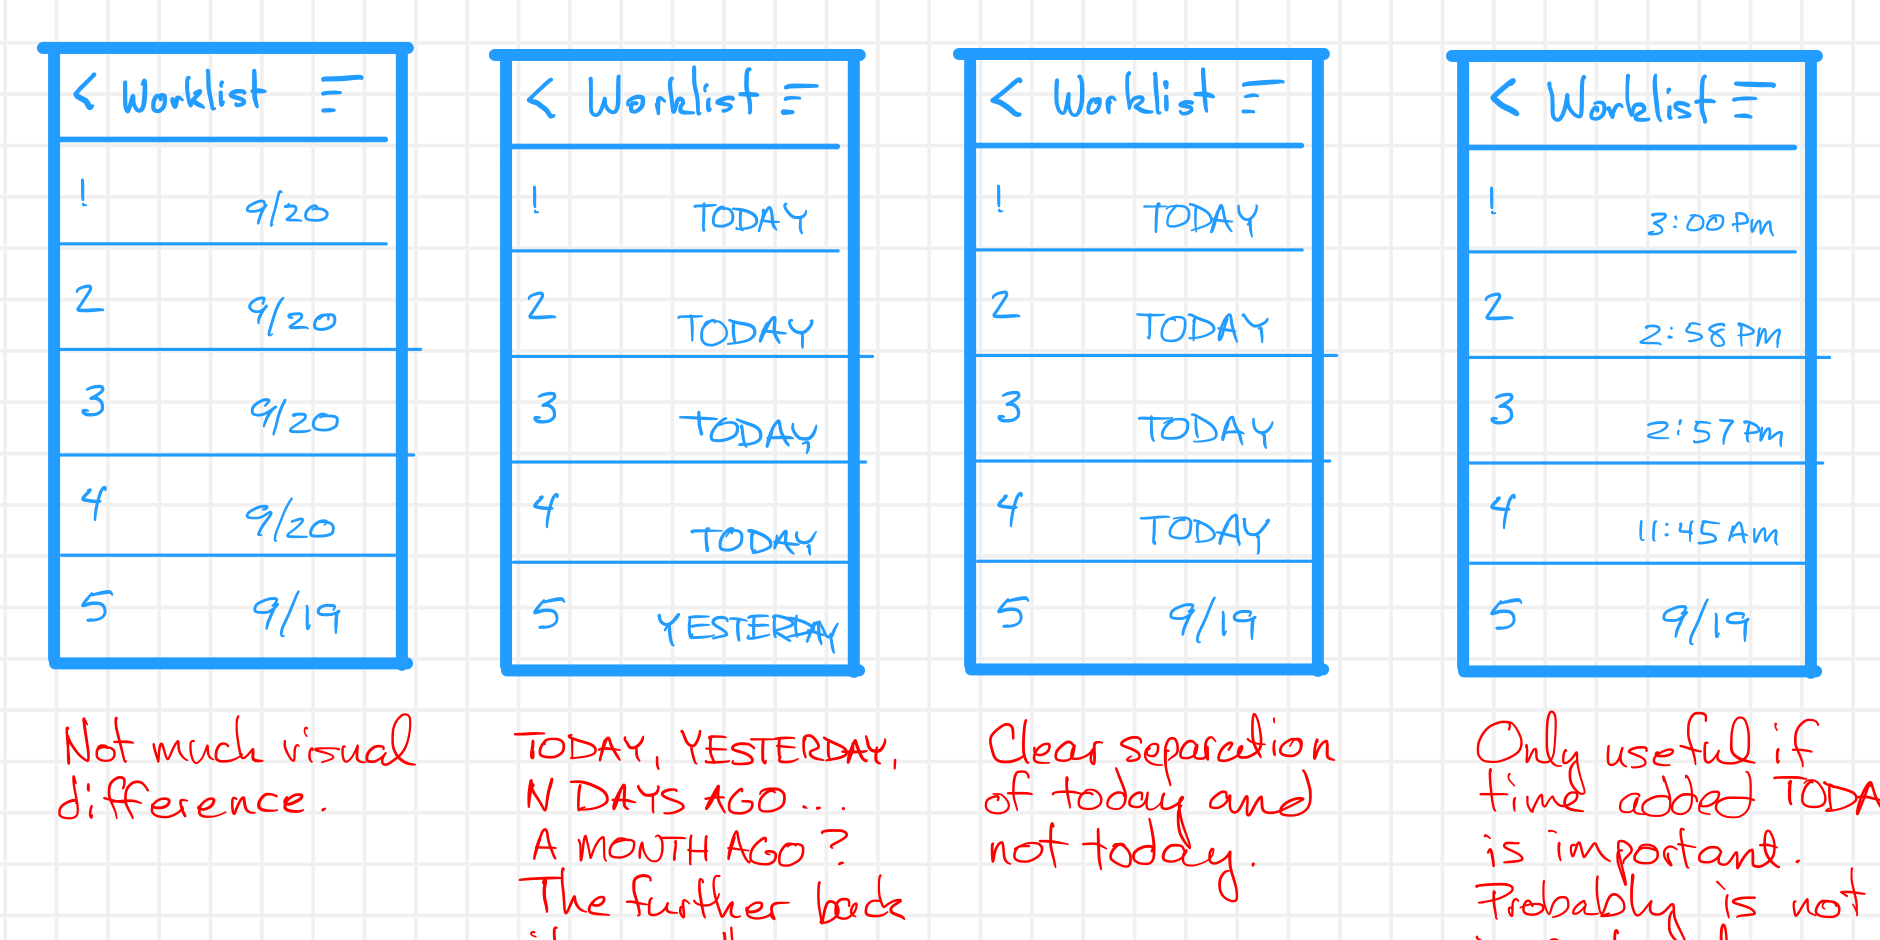 < Worklist
! 9/20
2 9/20
3 9/20
4 9/20
5 9/19
Not much visual
difference.
< Worklist
! TODAY
2 TODAY
3 TODAY
4 TODAY
5 YESTERDAY
TODAY, YESTERDAY,
N DAYS AGO...
A MONTH AGO?
The further back
< Worklist
! TODAY
2 TODAY
3 TODAY
4 TODAY
5 9/19
Clear separation
of today and
not today.
< Worklist
! 3:00 PM
2 2:58 PM
3 2:57 PM
4 11:45 AM
5 9/19
Only useful if
time added TODA
is important.
Probably is not